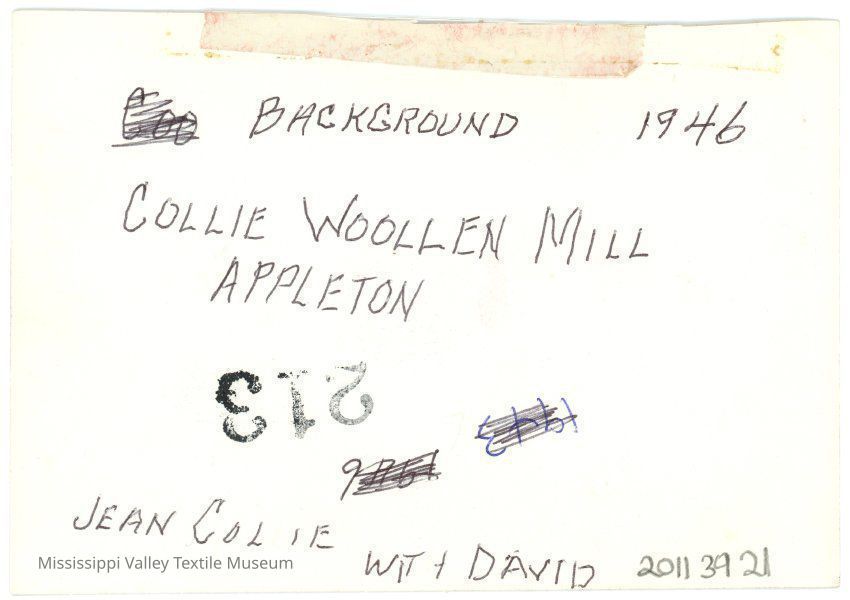 BACKGROUND 1946
COLLIE WOOLLEN MILL
APPLETON
213
JEAN COLLIE
WITH DAVID 2011 39 21
Mississippi Valley Textile Museum